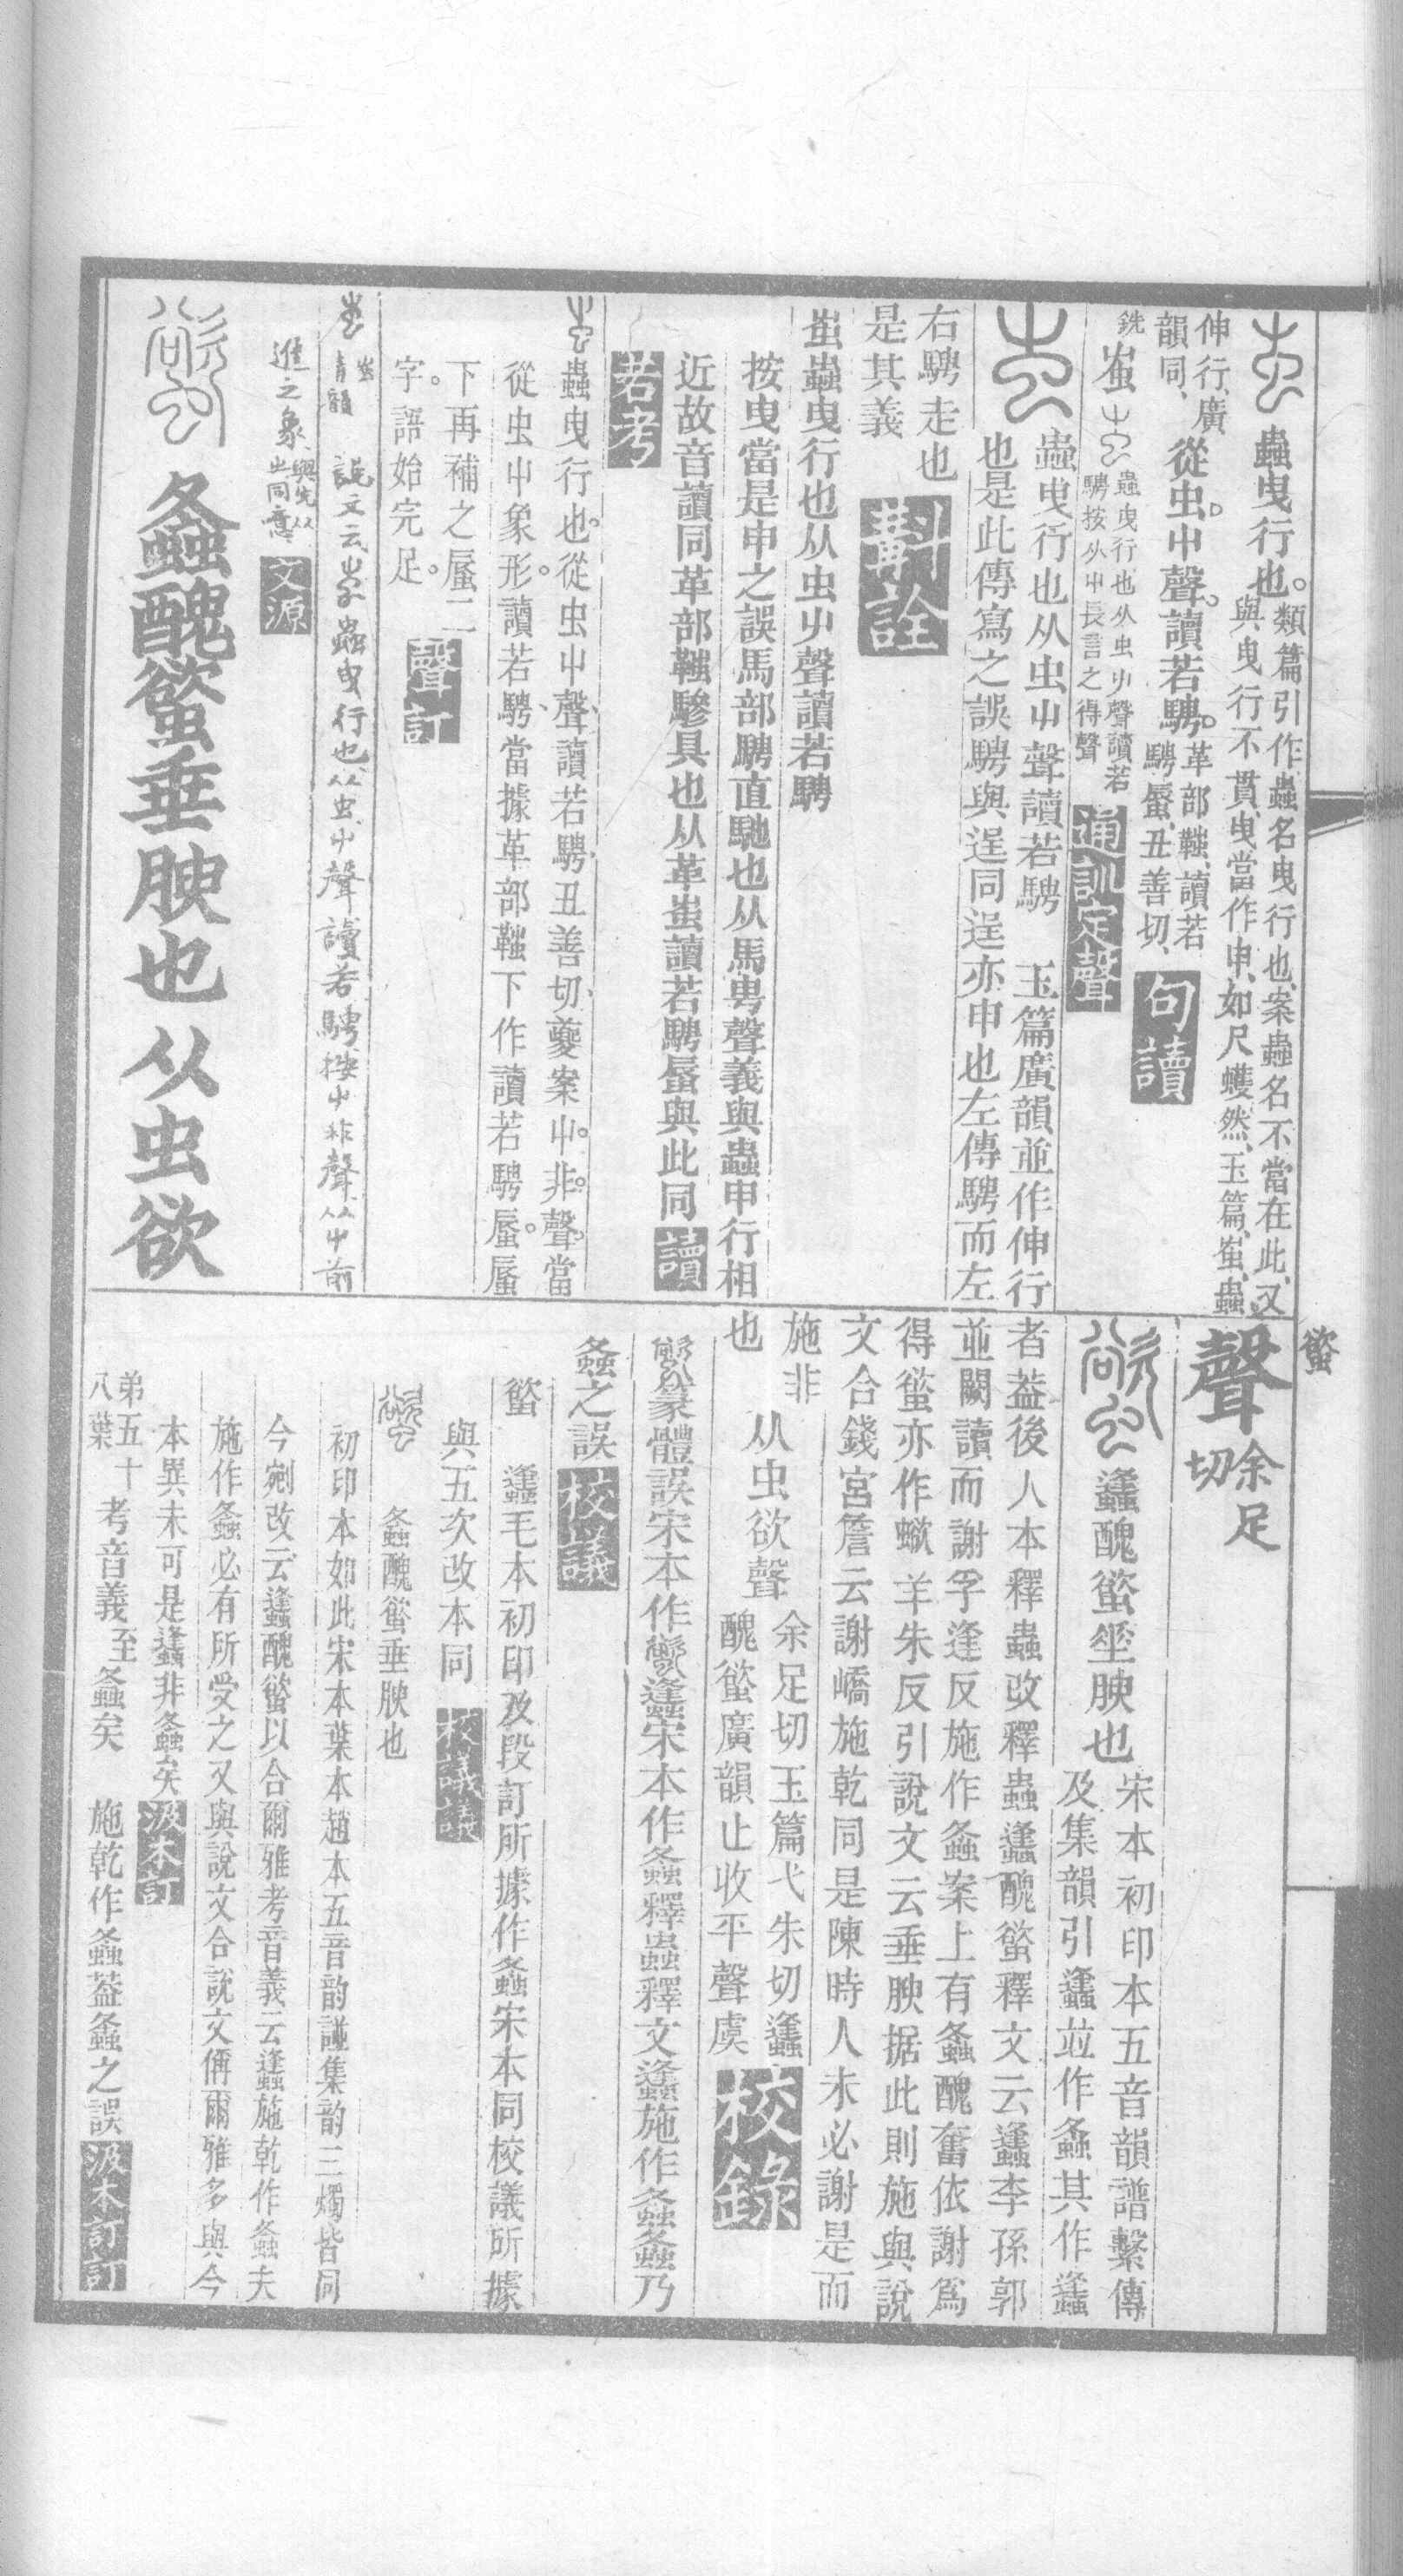 蟲曳行也。類篇引作蟲名曳行也、案蟲名不當在此、又
與曳行不貫、曳當作申、如尺蠖然、玉篇、蚩、蟲
伸行、廣
韻同、從虫。屮聲。讀若騁。革部𩋙、讀若
騁蜃、丑善切、句讀
銑 蚩 蟲曳行也从虫屮聲讀若
騁按从屮長言之得聲 通訓定聲
蟲曳行也从虫屮聲讀若騁 玉篇廣韻並作伸行
也是此傳寫之誤騁與逞同逞亦申也左傳騁而左
右騁走也
是其義 斠詮
蚩蟲曳行也从虫屮聲讀若騁
按曳當是申之誤馬部騁直馳也从馬甹聲義與蟲申行相
近故音讀同革部𩋙驂具也从革蚩讀若騁蜃與此同 讀
若考
蟲曳行也。從虫屮聲、讀若騁、丑善切、夔案屮。非。聲。當
從虫屮象形。讀若騁、當據革部𩋙下作讀若騁蜃。蜃
下再補之蜃二
字。語始完足。聲訂
說文云 蟲曳行也从虫屮聲讀若騁按屮非聲从屮前
進之象 與先从
㞢同意 文源
螽醜螸垂腴也从虫欲
螸
聲 余足
切
蠭醜螸垂腴也 宋本初印本五音韻譜繫傳
及集韻引蠭竝作螽其作蠭
者葢後人本釋蟲改釋蟲蠭醜螸釋文云蠭李孫郭
並闕讀而謝孚逢反施作螽案上有螽醜奮依謝爲
得螸亦作蠍羊朱反引說文云垂腴据此則施與說
文合錢宮詹云謝嶠施乾同是陳時人未必謝是而
施非
也 从虫欲聲 余足切玉篇弋朱切蠭
醜螸廣韻止收平聲虞 校錄
篆體誤宋本作 蠭宋本作螽釋蟲釋文蠭施作螽螽乃
螽之誤 校議
螸 蠭毛本初印及段訂所據作螽宋本同校議所據
與五次改本同 校議議
螽醜螸垂腴也
初印本如此宋本葉本趙本五音韵譜集韵三燭皆同
今剜改云蠭醜螸以合爾雅考音義云蠭施乾作螽夫
施作螽必有所受之又與說文合說文偁爾雅多與今
本異未可是蠭非螽矣 汲本訂
弟五十
八葉 考音義至螽矣 施乾作螽葢螽之誤 汲本訂訂